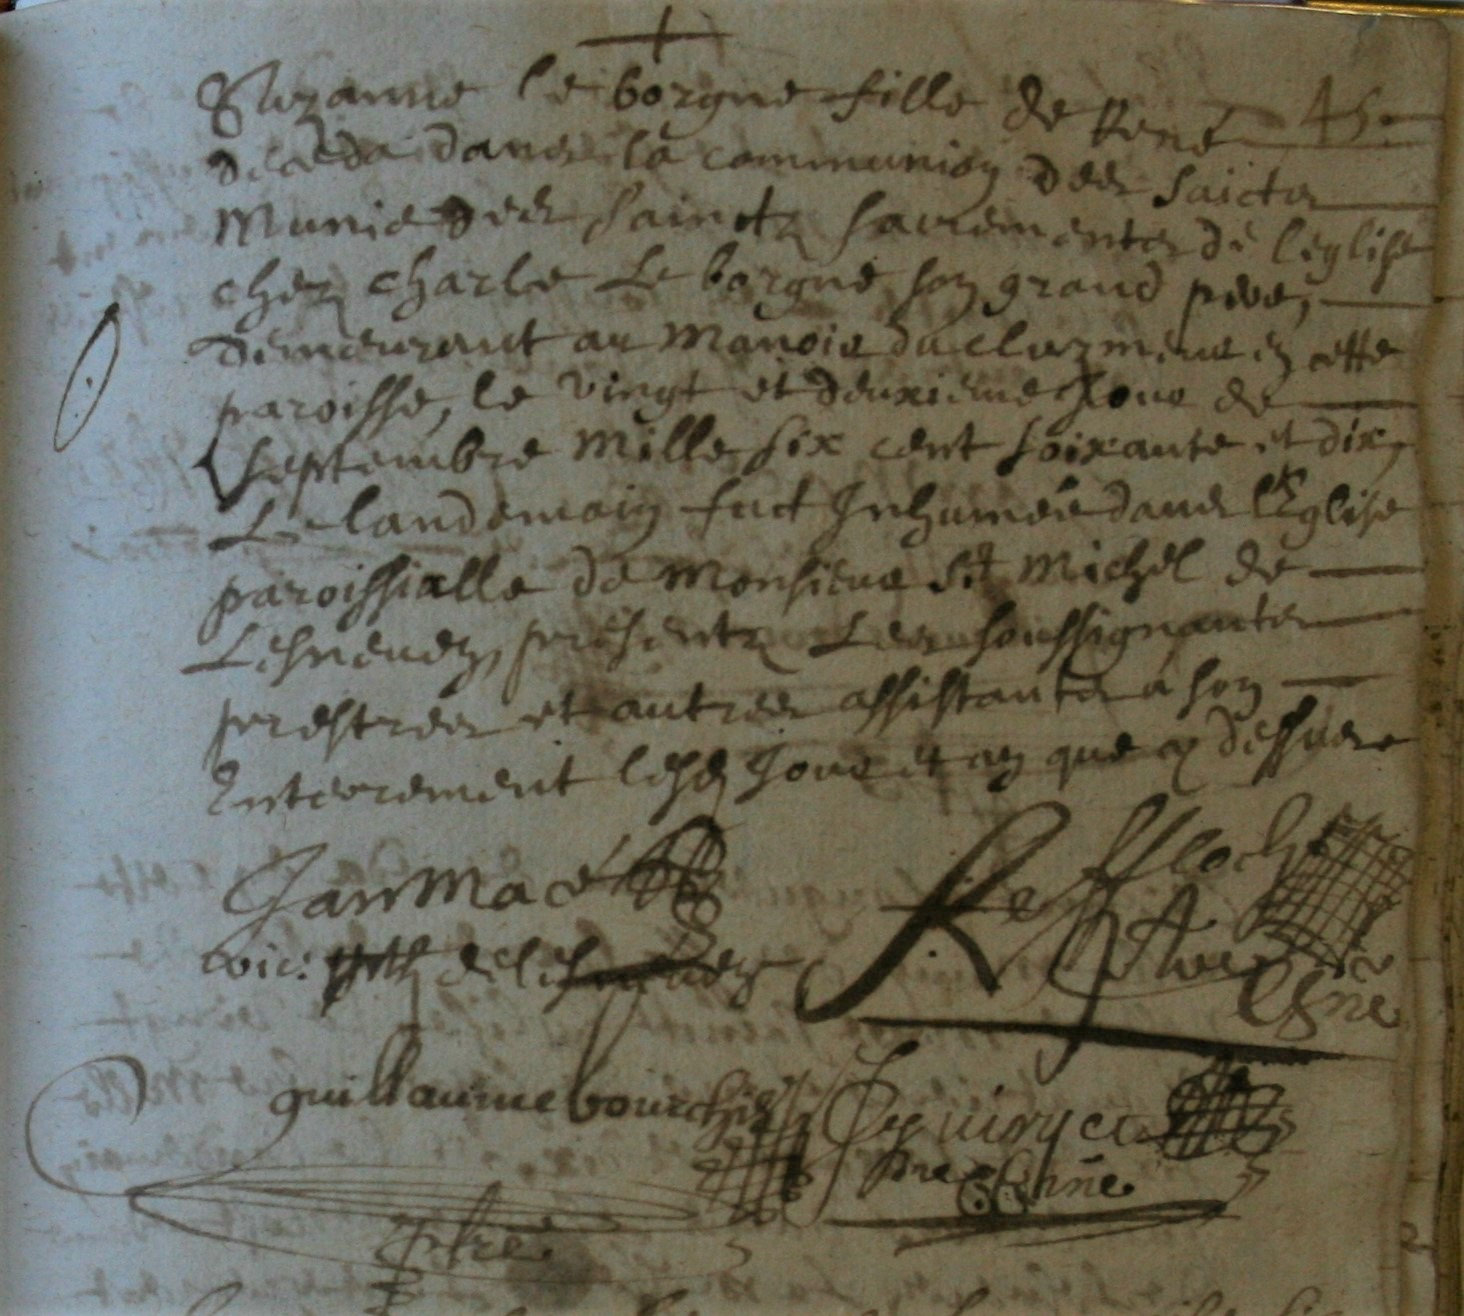 Suzanne le borgne fille de René 45.
deceda dans la communion des saicts
Munie des saincts sacrements de l'eglise
chez charle Le borgne son grand pere,
demeurant au manoir du en cette
paroisse, le vingt et deuxieme Jour de
septembre mille six cent soixante et dix,
Le landemain fut Inhumée dans l'Eglise
paroissialle de Monsieur st Michel de
Lesneuen, presents Les soussignants
prestres et autres assistants a son
Enterrement lesd Jour et an que cy dessus
Jan Macé
vic:
guillaume bourchis
ptre